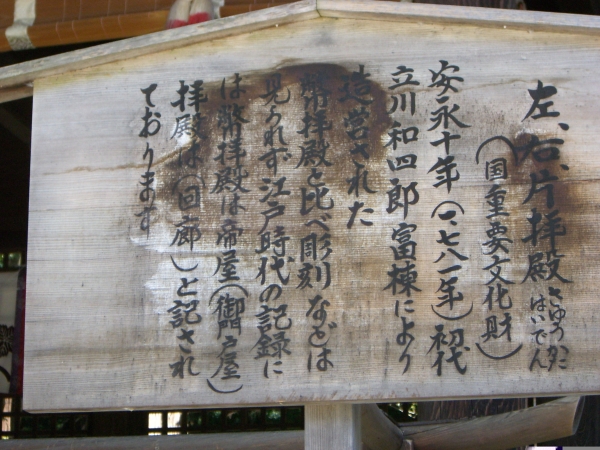 左、右、片拝殿 さゆうかたはいでん
（国重要文化財）
安永十年（一七八一年）初代
立川和四郎富棟により
造営された
幣拝殿と比べ彫刻などは
見られず江戸時代の記録に
は幣拝殿は帝屋（御門戸屋）
拝殿は（回廊）と記され
ております